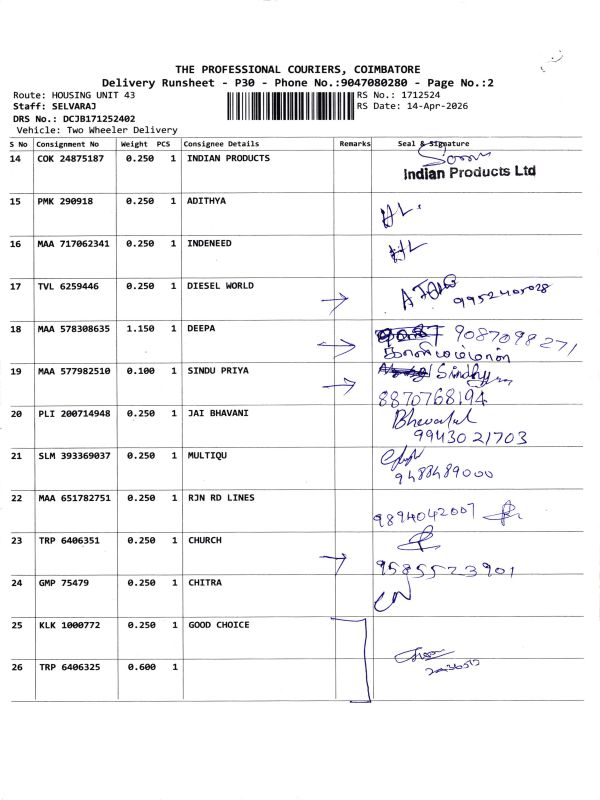 THE PROFESSIONAL COURIERS, COIMBATORE
Delivery Runsheet - P30 - Phone No.:9047080280 - Page No.:2
Route: HOUSING UNIT 43
RS No.: 1712524
Staff: SELVARAJ
RS Date: 14-Apr-2026
DRS No.: DCJB171252402
Vehicle: Two Wheeler Delivery
S No Consignment No Weight PCS Consignee Details Remarks Seal & Signature
14 COK 24875187 0.250 1 INDIAN PRODUCTS
Indian Products Ltd
15 PMK 290918 0.250 1 ADITHYA
16 MAA 717062341 0.250 1 INDENEED
17 TVL 6259446 0.250 1 DIESEL WORLD
9952405028
18 MAA 578308635 1.150 1 DEEPA
9087098271
19 MAA 577982510 0.100 1 SINDU PRIYA
8870768194
20 PLI 200714948 0.250 1 JAI BHAVANI
9943021703
21 SLM 393369037 0.250 1 MULTIQU
9488489000
22 MAA 651782751 0.250 1 RJN RD LINES
9894042007
23 TRP 6406351 0.250 1 CHURCH
9585523901
24 GMP 75479 0.250 1 CHITRA
25 KLK 1000772 0.250 1 GOOD CHOICE
26 TRP 6406325 0.600 1